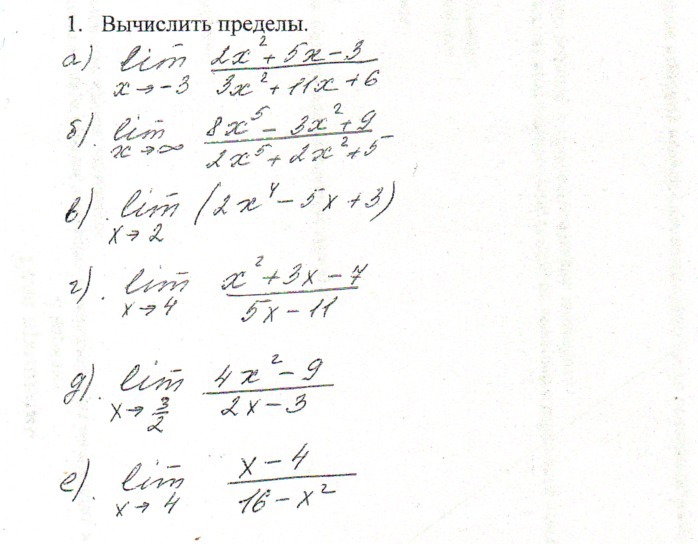 1. Вычислить пределы.
а) lim x→-3 (2x²+5x-3)/(3x²+11x+6)
б). lim x→∞ (8x⁵-3x²+9)/(2x⁵+2x²+5)
в). lim x→2 (2x⁴-5x+3)
г). lim x→4 (x²+3x-7)/(5x-11)
д). lim x→3/2 (4x²-9)/(2x-3)
е). lim x→4 (x-4)/(16-x²)